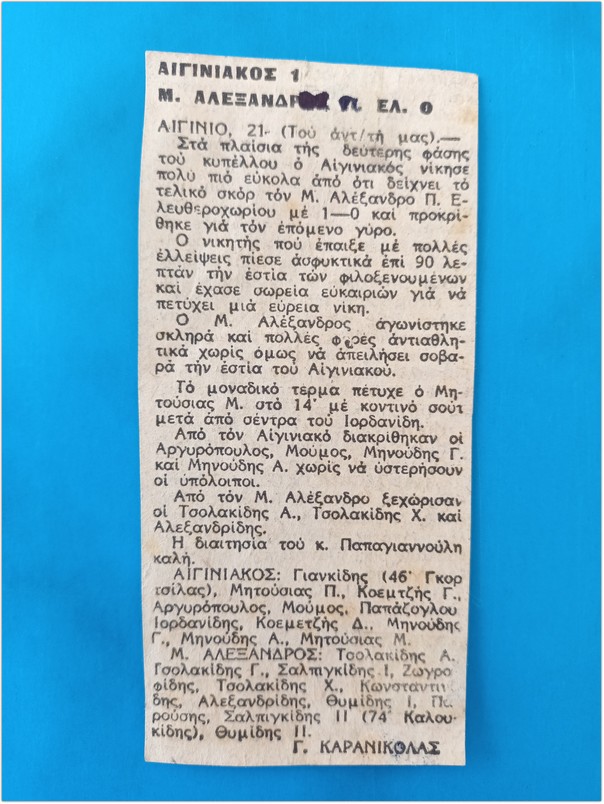 ΑΙΓΙΝΙΑΚΟΣ 1
Μ. ΑΛΕΞΑΝΔΡ Π. ΕΛ. 0
ΑΙΓΙΝΙΟ, 21 (Τοῦ ἀντ/τῆ μας).—
Στά πλαίσια τῆς δεύτερης φάσης
τοῦ κυπέλλου ὁ Αἰγινιακός νίκησε
πολύ πιό εὔκολα ἀπό ὅτι δείχνει τό
τελικό σκόρ τόν Μ. Αλέξανδρο Π. Ε-
λευθεροχωρίου μέ 1—0 καί προκρί-
θηκε γιά τόν ἑπόμενο γύρο.
Ο νικητής πού ἔπαιξε μέ πολλές
ἐλλείψεις πίεσε ἀσφυκτικά ἐπί 90 λε-
πτάν τήν ἑστία τῶν φιλοξενουμένων
καί ἔχασε σωρεία εὐκαιριῶν γιά νά
πετύχει μιά εὐρεια νίκη.
Ο Μ. Αλέξανδρος ἀγωνίστηκε
σκληρά καί πολλές φορές ἀντιαθλη-
τικά χωρίς ὅμως νά ἀπειλήσει σοβα-
ρά τήν ἑστία τοῦ Αἰγινιακοῦ.
Τό μοναδικό τέρμα πέτυχε ὁ Μη-
τούσιας Μ. στό 14' μέ κοντινό σούτ
μετά ἀπό σέντρα τοῦ Ιορδανίδη.
Από τόν Αἰγινιακό διακρίθηκαν οἱ
Αργυρόπουλος, Μούμος, Μηνούδης Γ.
καί Μηνούδης Α. χωρίς νά ὑστερήσουν
οἱ ὑπόλοιποι.
Από τόν Μ. Αλέξανδρο ξεχώρισαν
οἱ Τσολακίδης Α., Τσολακίδης Χ. καί
Αλεξανδρίδης.
Η διαιτησία τοῦ κ. Παπαγιαννούλη
καλή.
ΑΙΓΙΝΙΑΚΟΣ: Γιανκίδης (46' Γκορ
τσίλας), Μητούσιας Π., Κοεμτζής Γ.,
Αργυρόπουλος, Μούμος, Παπάζογλου
Ιορδανίδης, Κοεμετζής Δ., Μηνούδης
Γ., Μηνούδης Α., Μητούσιας Μ.
Μ. ΑΛΕΞΑΝΔΡΟΣ: Τσολακίδης Α.
Τσολακίδης Γ., Σαλπιγκίδης Ι, Ζωγρα
φίδης, Τσολακίδης Χ., Κωνσταντινί
δης, Αλεξανδρίδης, Θυμίδης Ι, Πα
ρούσης, Σαλπιγκίδης ΙΙ (74' Καλου-
κίδης), Θυμίδης ΙΙ.
Γ. ΚΑΡΑΝΙΚΟΛΑΣ